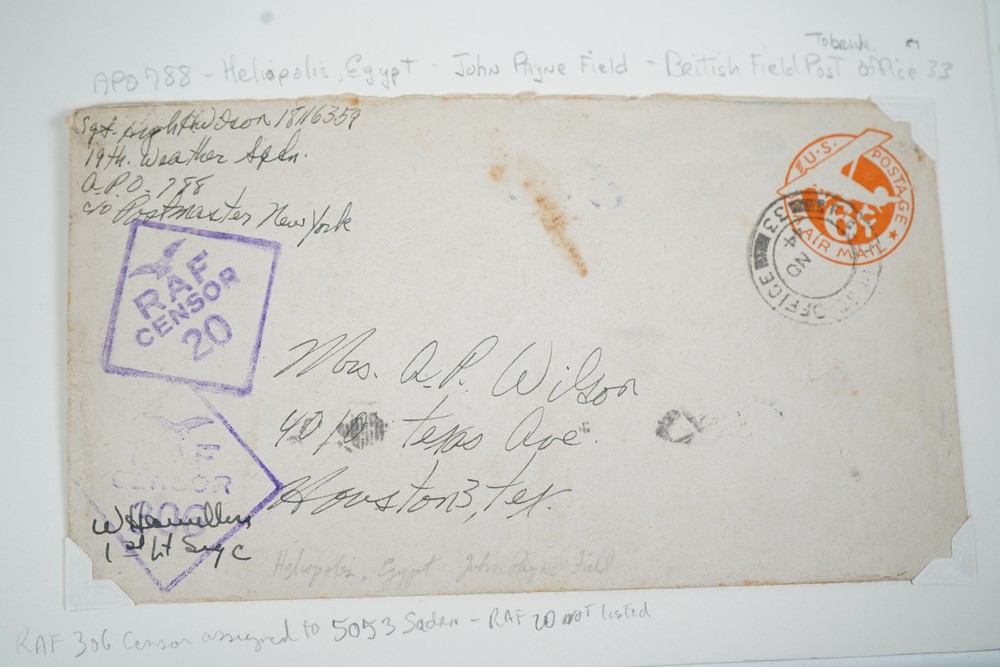 Tobruk
APO 788 - Heliopolis, Egypt - John Payne Field - British Field Post Office 33
Sgt. Wilson 18116359
19th. Weather Sqdn.
A.P.O. 788
c/o Postmaster New York
U.S. POSTAGE
6¢
VIA AIR MAIL
OFFICE 33
NO
44
RAF
CENSOR
20
Mrs. A.P. Wilson
4010 Texas Ave.
Houston 3, Tex.
RAF
CENSOR
306
1st Lt Sig C
Heliopolis, Egypt John Payne Field
RAF 306 Censor assigned to 5053 Sqdn - RAF 20 not listed